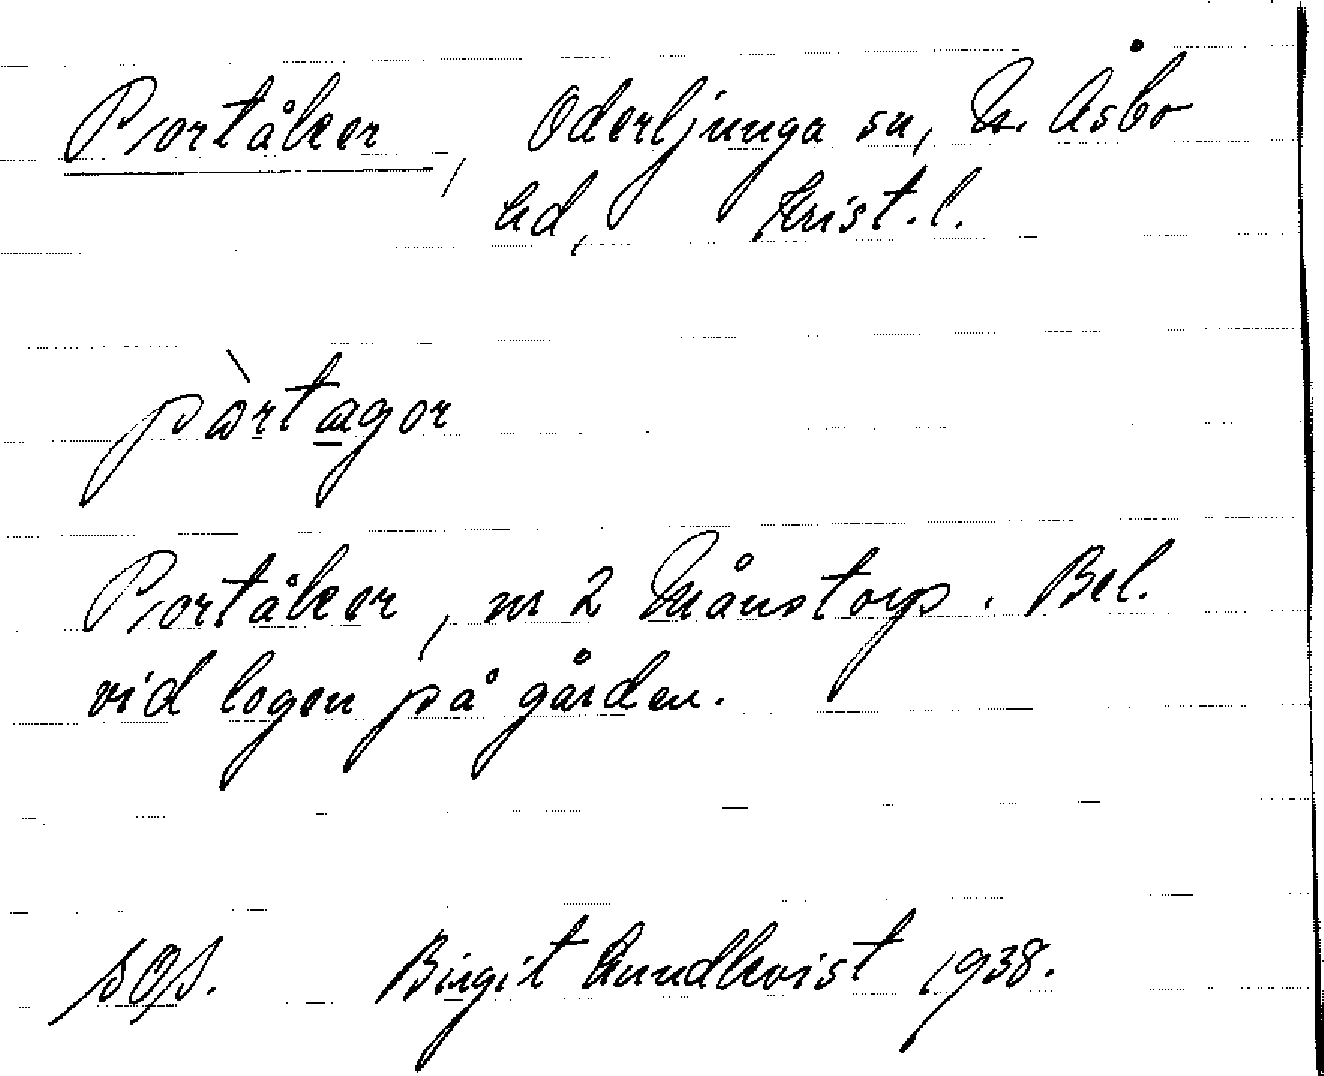 Portåker, Oderljunga sn, N. Åsbo
hd, Krist. l.
pàrtagor
Portåker, nr 2 Månstorp. Bel.
vid logen på gården.
sOs. Birgit Lundkvist 1938.